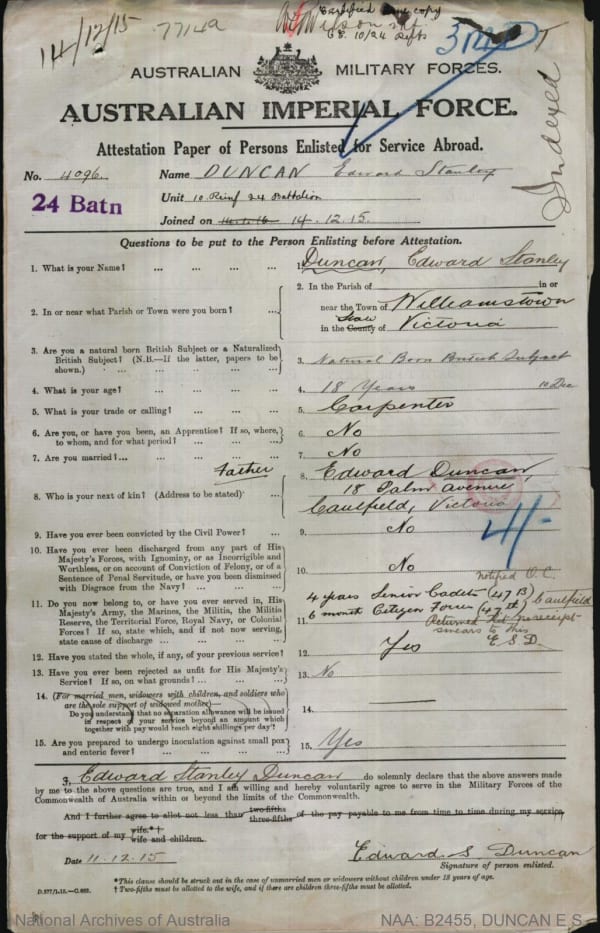 14/12/15
Certified true copy
C.E. 10/24 Rfts
3 MD
AUSTRALIAN MILITARY FORCES.
AUSTRALIAN IMPERIAL FORCE.
Indexed
Attestation Paper of Persons Enlisted for Service Abroad.
No. 4096. Name DUNCAN Edward Stanley
24 Batn
Unit 10 Reinf 24 Battalion
Joined on 14.12.15.
Questions to be put to the Person Enlisting before Attestation.
1. What is your Name? ... ... ... ... 1. Duncan, Edward Stanley
2. In or near what Parish or Town were you born? ... 2. In the Parish of in or
near the Town of Williamstown
in the County State of Victoria
3. Are you a natural born British Subject or a Naturalized
British Subject? (N.B.—If the latter, papers to be
shown.) ... ... ... ... 3. Natural Born British Subject
4. What is your age? ... ... ... ... 4. 18 Years 10 Dec
5. What is your trade or calling? ... ... ... 5. Carpenter
6. Are you, or have you been, an Apprentice? If so, where,
to whom, and for what period? ... ... ... 6. No
7. Are you married?... ... ... ... 7. No
Father
8. Who is your next of kin? (Address to be stated) ... 8. Edward Duncan,
18 Palm avenue
Caulfield, Victoria
4/-
9. Have you ever been convicted by the Civil Power? ... 9. No
10. Have you ever been discharged from any part of His
Majesty's Forces, with Ignominy, or as Incorrigible and
Worthless, or on account of Conviction of Felony, or of a
Sentence of Penal Servitude, or have you been dismissed
with Disgrace from the Navy? ... ... ... 10. No
notified O.C.
11. Do you now belong to, or have you ever served in, His
Majesty's Army, the Marines, the Militia, the Militia
Reserve, the Territorial Force, Royal Navy, or Colonial
Forces? If so, state which, and if not now serving,
state cause of discharge ... ... ... 11. 4 years Senior Cadets (47B) Caulfield
6 month Citizen Forces (47th)
Returned
to this
E S D.
12. Have you stated the whole, if any, of your previous service? 12. Yes
13. Have you ever been rejected as unfit for His Majesty's
Service? If so, on what grounds? ... ... ... 13. No
14. (For married men, widowers with children, and soldiers who
are the sole support of widowed mother)—
Do you understand that no separation allowance will be issued
in respect of your service beyond an amount which
together with pay would reach eight shillings per day? 14.
15. Are you prepared to undergo inoculation against small pox
and enteric fever? ... ... ... ... 15. Yes
I, Edward Stanley Duncan do solemnly declare that the above answers made
by me to the above questions are true, and I am willing and hereby voluntarily agree to serve in the Military Forces of the
Commonwealth of Australia within or beyond the limits of the Commonwealth.
And I further agree to allot not less than two-fifths three-fifths of the pay payable to me from time to time during my service
for the support of my wife.*† wife and children.
Date 11.12.15
Edward S Duncan
Signature of person enlisted.
*This clause should be struck out in the case of unmarried men or widowers without children under 18 years of age.
† Two-fifths must be allotted to the wife, and if there are children three-fifths must be allotted.
D.577/1.15.—C.693.
National Archives of Australia
NAA: B2455, DUNCAN E S